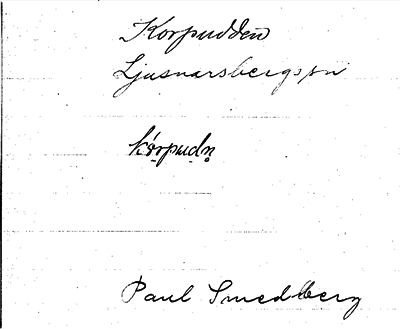 Korpudden
Ljusnarsbergs sn
kórpudn̥
Paul Smedberg